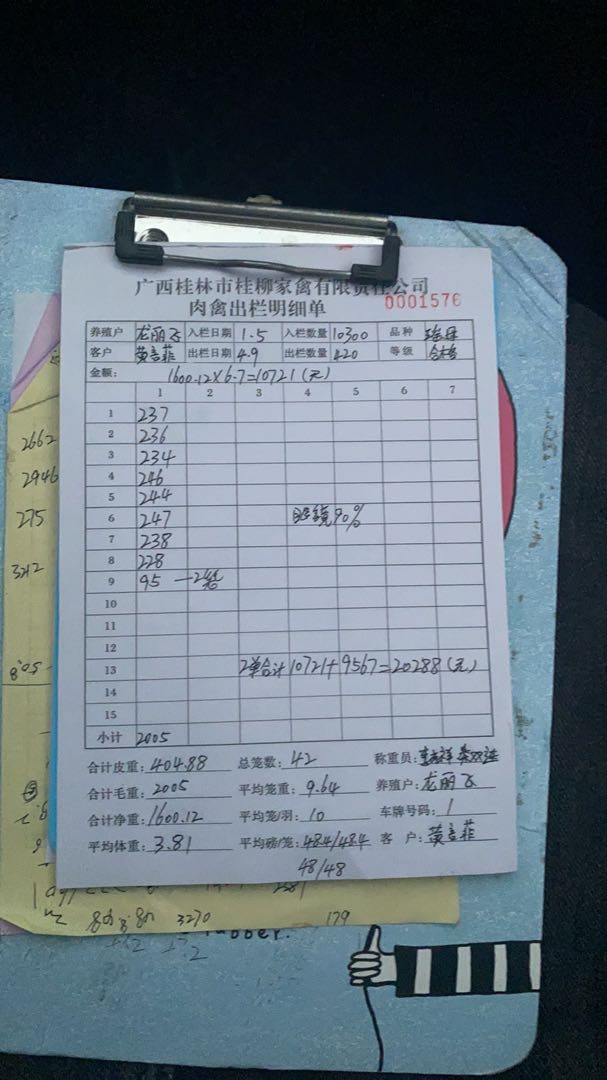 广西桂林市桂柳家禽有限责任公司
肉禽出栏明细单 0001576
养殖户 龙丽飞 入栏日期 1.5 入栏数量 10300 品种
客户 黄 菲 出栏日期 4.9 出栏数量 420 等级 合格
金额: 1600.12×6.7=10721(元)
1 2 3 4 5 6 7
1 237
2 236
3 234
4 246
5 244
6 247 90%
7 238
8 228
9 95 一2笼
10
11
12
13 2单合计10721+9567=20288(元)
14
15
小计 2005
合计皮重: 404.88 总笼数: 42 称重员:
合计毛重: 2005 平均笼重: 9.64 养殖户: 龙丽飞
合计净重: 1600.12 平均笼/羽: 10 车牌号码: 1
平均体重: 3.81 平均磅/笼: 48.4/48.4 客 户: 黄 菲
48/48
2662
2946
275
3212
8.05
3270
179